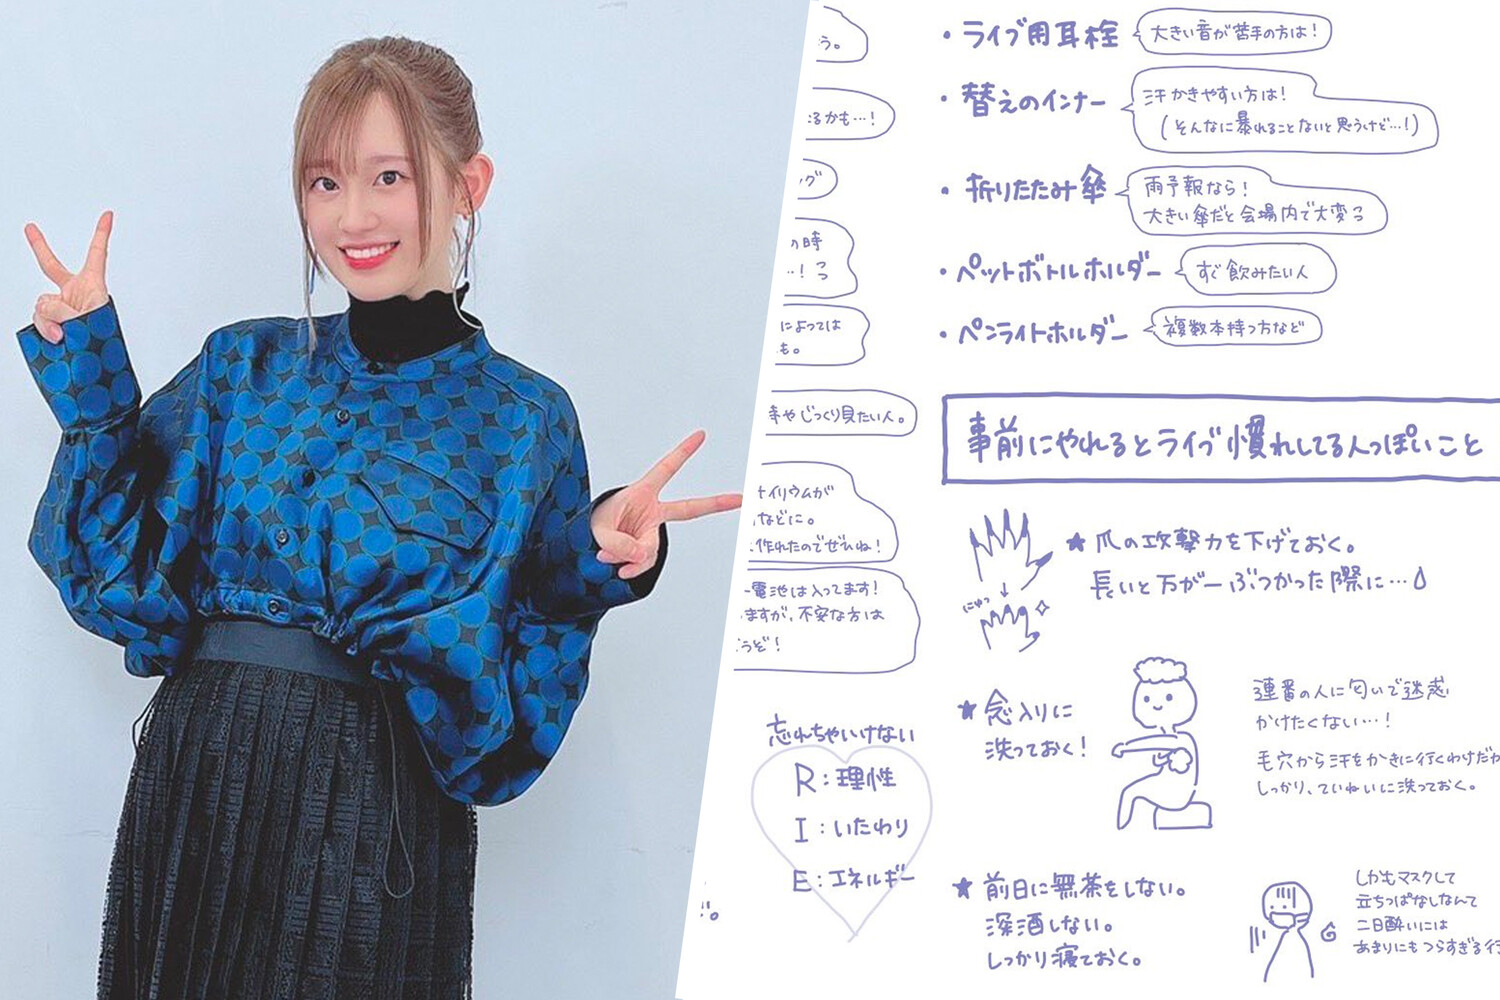 う。
るかも…!
ング
の時
…!
によっては
も。
手やじっくり見たい人。
イリウムが
などに。
作れたのでぜひね!
電池は入ってます!
ますが、不安な方は
うぞ!
忘れちゃいけない
R:理性
I:いたわり
E:エネルギー
・ライブ用耳栓
大きい音が苦手の方は!
・替えのインナー
汗かきやすい方は!
(そんなに暴れることないと思うけど…!)
・折りたたみ傘
雨予報なら!
大きい傘だと会場内で大変っ
・ペットボトルホルダー
すぐ飲みたい人
・ペンライトホルダー
複数本持つ方など
事前にやれるとライブ慣れしてる人っぽいこと
★爪の攻撃力を下げておく。
長いと万が一ぶつかった際に…
にゅっ
★念入りに
洗っておく!
連番の人に匂いで迷惑
かけたくない…!
毛穴から汗をかきに行くわけだか
しっかり、ていねいに洗っておく。
★前日に無茶をしない。
深酒しない。
しっかり寝ておく。
しかもマスクして
立ちっぱなしなんて
二日酔いには
あまりにもつらすぎる行